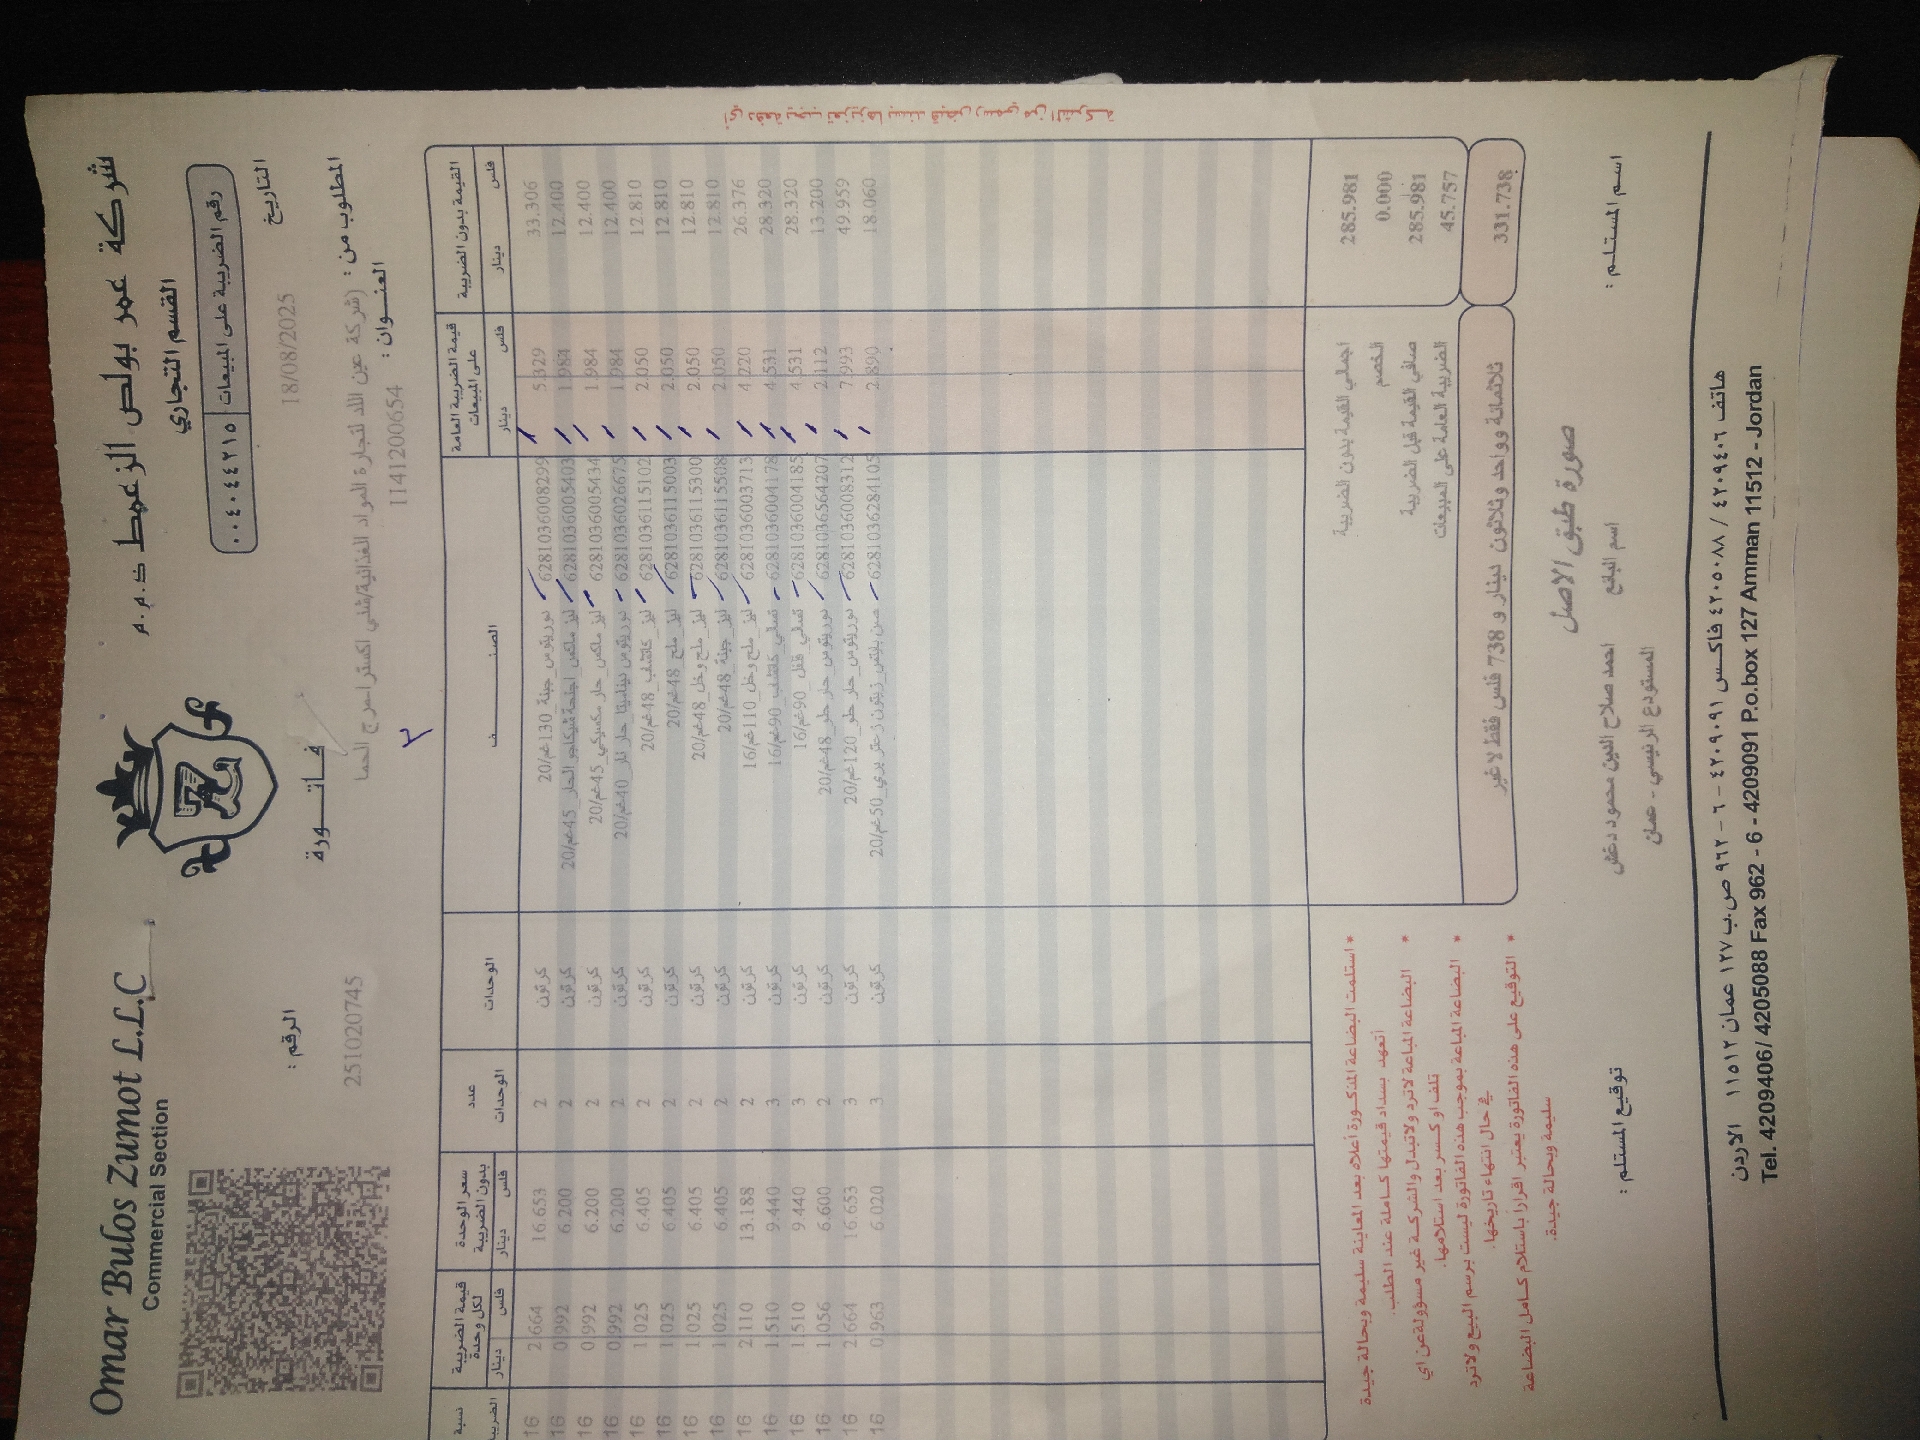 Omar Bulos Zumot L.L.C
Commercial Section
شركة عمر بولص الزعمط ذ.م.م
القسم التجاري
رقم الضريبة على المبيعات ٠٠٤٠٤٤٢١٥
التاريخ
18/08/2025
فاتورة
الرقم :
251020745
المطلوب من : (شركة عين اللد لتجارة المواد الغذائية/شلبي اكسترا مرج الحما
العنوان :
1141200654
القيمة بدون الضريبة دينار فلس | قيمة الضريبة العامة على المبيعات دينار فلس | الصنف | الوحدات | عدد الوحدات | سعر الوحدة بدون الضريبة دينار فلس | قيمة الضريبة لكل وحدة دينار فلس | نسبة الضريبة
33.306 5.329 6281036008299 دوريتوس_جبنة_130غم/20 كرتون 2 16.653 2.664 16
12.400 1.984 6281036005403 ليز ماكس_اجنحة شيكاجو الحار_45غم/20 كرتون 2 6.200 0.992 16
12.400 1.984 6281036005434 ليز ماكس_حار مكسيكي_45غم/20 كرتون 2 6.200 0.992 16
12.400 1.984 6281036026675 دوريتوس ديناميتا_حار نار_40غم/20 كرتون 2 6.200 0.992 16
12.810 2.050 6281036115102 ليز_كاتشب_48غم/20 كرتون 2 6.405 1.025 16
12.810 2.050 6281036115003 ليز_ملح_48غم/20 كرتون 2 6.405 1.025 16
12.810 2.050 6281036115300 ليز_ملح وخل_48غم/20 كرتون 2 6.405 1.025 16
12.810 2.050 6281036115508 ليز_جبنة_48غم/20 كرتون 2 6.405 1.025 16
26.376 4.220 6281036003713 ليز_ملح وخل_110غم/16 كرتون 2 13.188 2.110 16
28.320 4.531 6281036004178 تسالي_كاتشب_90غم/16 كرتون 3 9.440 1.510 16
28.320 4.531 6281036004185 تسالي_فلفل_90غم/16 كرتون 3 9.440 1.510 16
13.200 2.112 6281036564207 دوريتوس_حار حلو_48غم/20 كرتون 2 6.600 1.056 16
49.959 7.993 6281036008312 دوريتوس_حار حلو_120غم/20 كرتون 3 16.653 2.664 16
18.060 2.890 6281036284105 صن بايتس_زيتون زعتر بري_50غم/20 كرتون 3 6.020 0.963 16
اجمالي القيمة بدون الضريبة 285.981
الخصم 0.000
صافي القيمة قبل الضريبة 285.981
الضريبة العامة على المبيعات 45.757
ثلاثمائة وواحد وثلاثون دينار و 738 فلس فقط لا غير 331.738
* استلمت البضاعة المذكورة أعلاه بعد المعاينة سليمة وبحالة جيدة
أتعهد بسداد قيمتها كاملة عند الطلب.
* البضاعة المباعة لاترد ولاتبدل والشركة غير مسؤولة عن اي
تلف او كسر بعد استلامها.
* البضاعة المباعة بموجب هذه الفاتورة ليست برسم البيع ولاترد
في حال انتهاء تاريخها.
* التوقيع على هذه الفاتورة يعتبر اقراراً باستلام كامل البضاعة
سليمة وبحالة جيدة.
أي دفعة يجب تعزيزها بسند قبض رسمي من الشركة
صورة طبق الاصل
اسم المستلم :
اسم البائع
احمد صلاح الدين محمود دغش
المستودع الرئيسي - عمان
توقيع المستلم :
هاتف ٤٢٠٩٤٠٦ / ٤٢٠٥٠٨٨ فاكس ٤٢٠٩٠٩١ – ٦ – ٩٦٢ ص.ب ١٢٧ عمان ١١٥١٢ الاردن
Tel. 4209406/ 4205088 Fax 962 - 6 - 4209091 P.o.box 127 Amman 11512 - Jordan